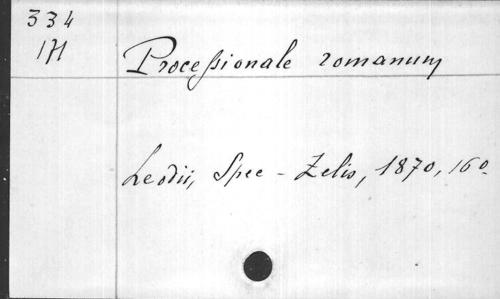 334
1H
Processionale romanum
Leodii, Spee - Zelis, 1870, 16o.